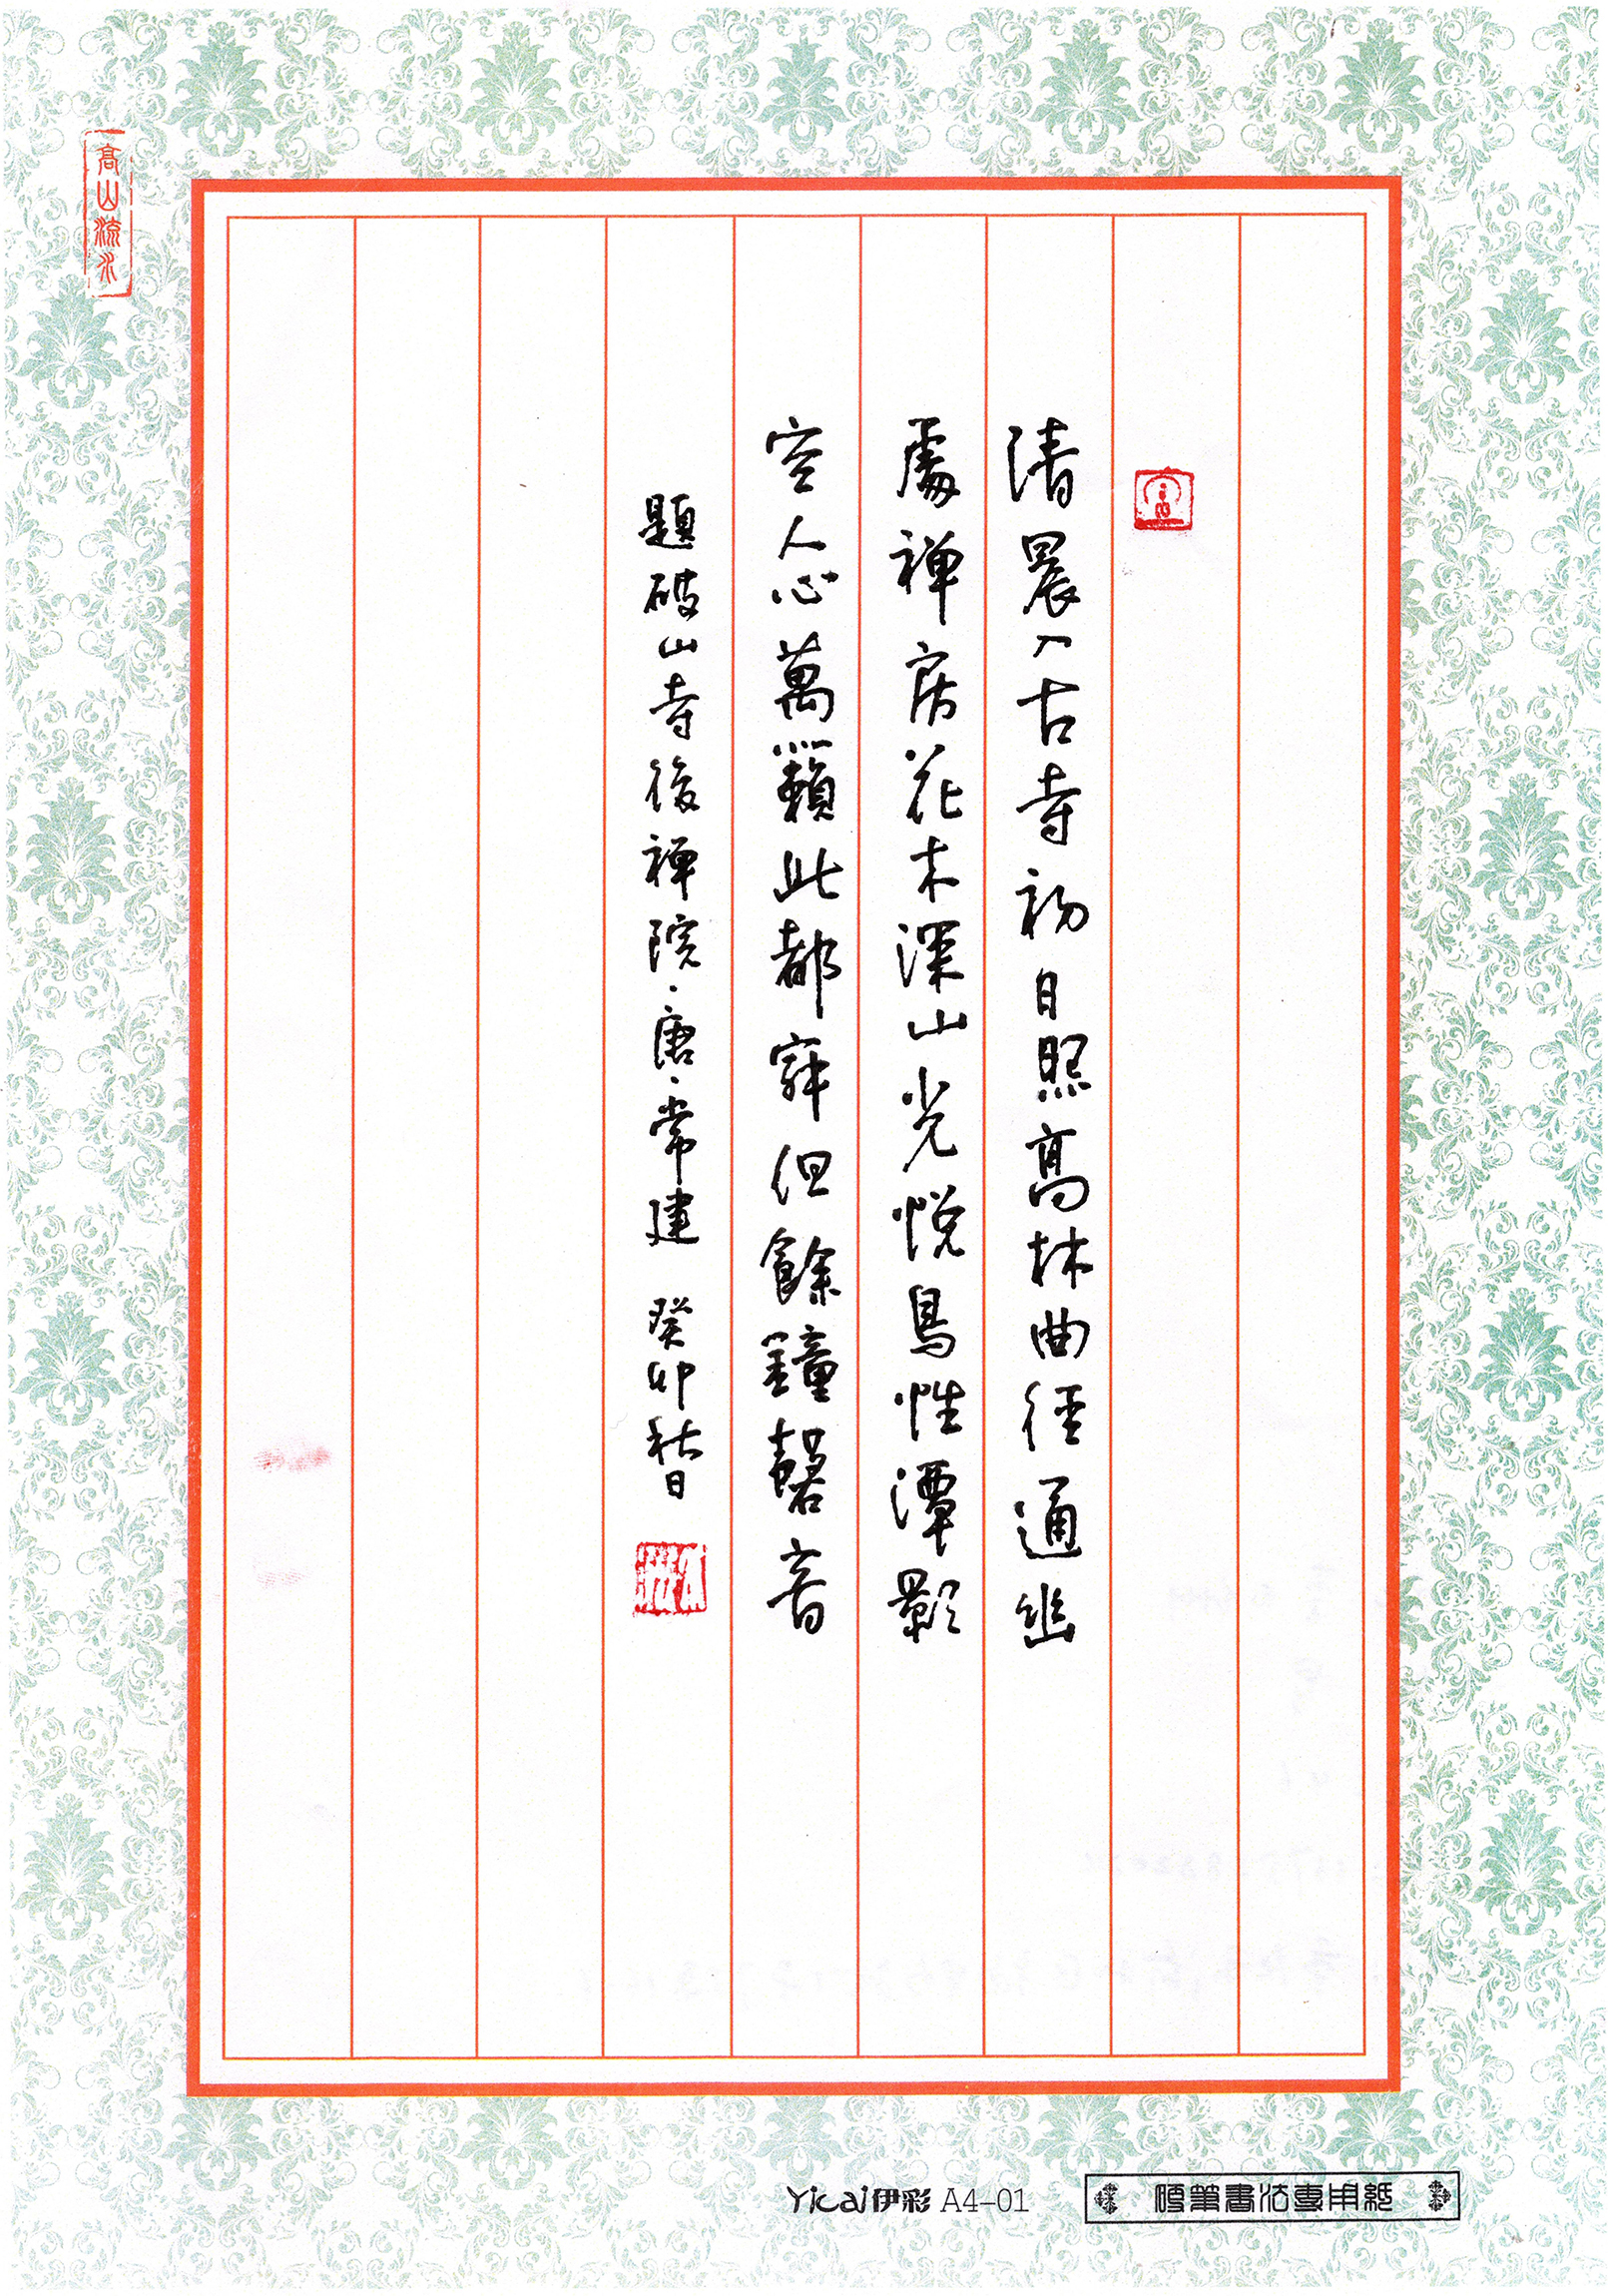 清晨入古寺初日照高林曲徑通幽
處禅房花木深山光悦鳥性潭影
空人心萬籟此都寂但餘鐘磬音
題破山寺後禅院·唐·常建 癸卯秋日
高山流水
Yicai伊彩 A4-01
硬筆書法專用紙